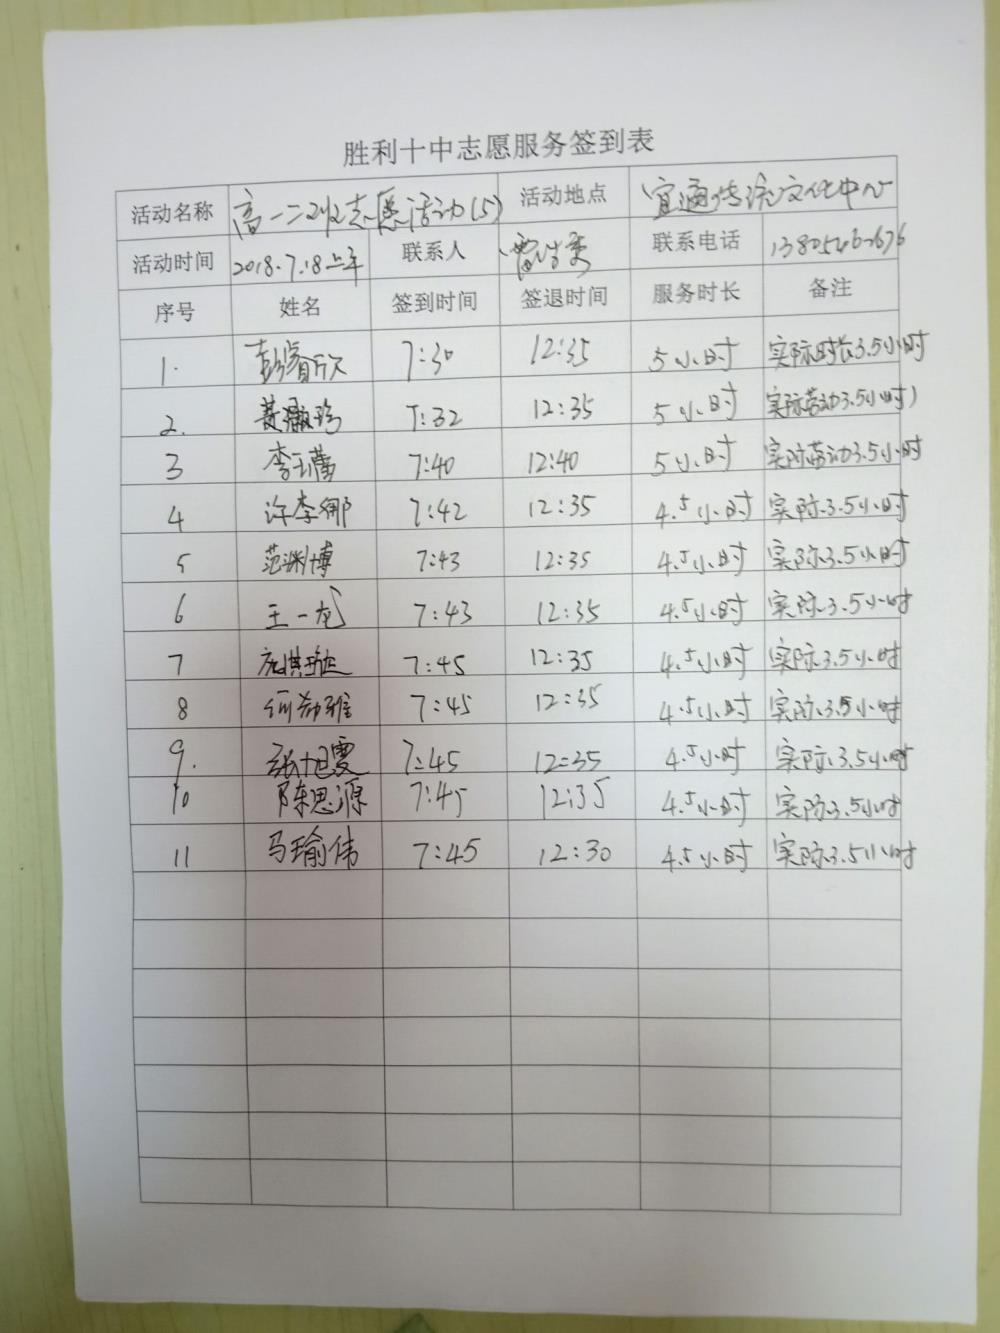 胜利十中志愿服务签到表
活动名称 高一二班志愿活动(5) 活动地点 宜通传统文化中心
活动时间 2018.7.18上午 联系人 联系电话
序号 姓名 签到时间 签退时间 服务时长 备注
1. 7:30 12:35 5小时 实际时长3.5小时
2. 7:32 12:35 5小时 实际劳动3.5小时)
3 7:40 12:40 5小时 实际劳动3.5小时
4 许李娜 7:42 12:35 4.5小时 实际3.5小时
5 范渊博 7:43 12:35 4.5小时 实际3.5小时
6 王一龙 7:43 12:35 4.5小时 实际3.5小时
7 7:45 12:35 4.5小时 实际3.5小时
8 7:45 12:35 4.5小时 实际3.5小时
9. 张旭雯 7:45 12:35 4.5小时 实际3.5小时
10 陈思源 7:45 12:35 4.5小时 实际3.5小时
11 马瑜伟 7:45 12:30 4.5小时 实际3.5小时